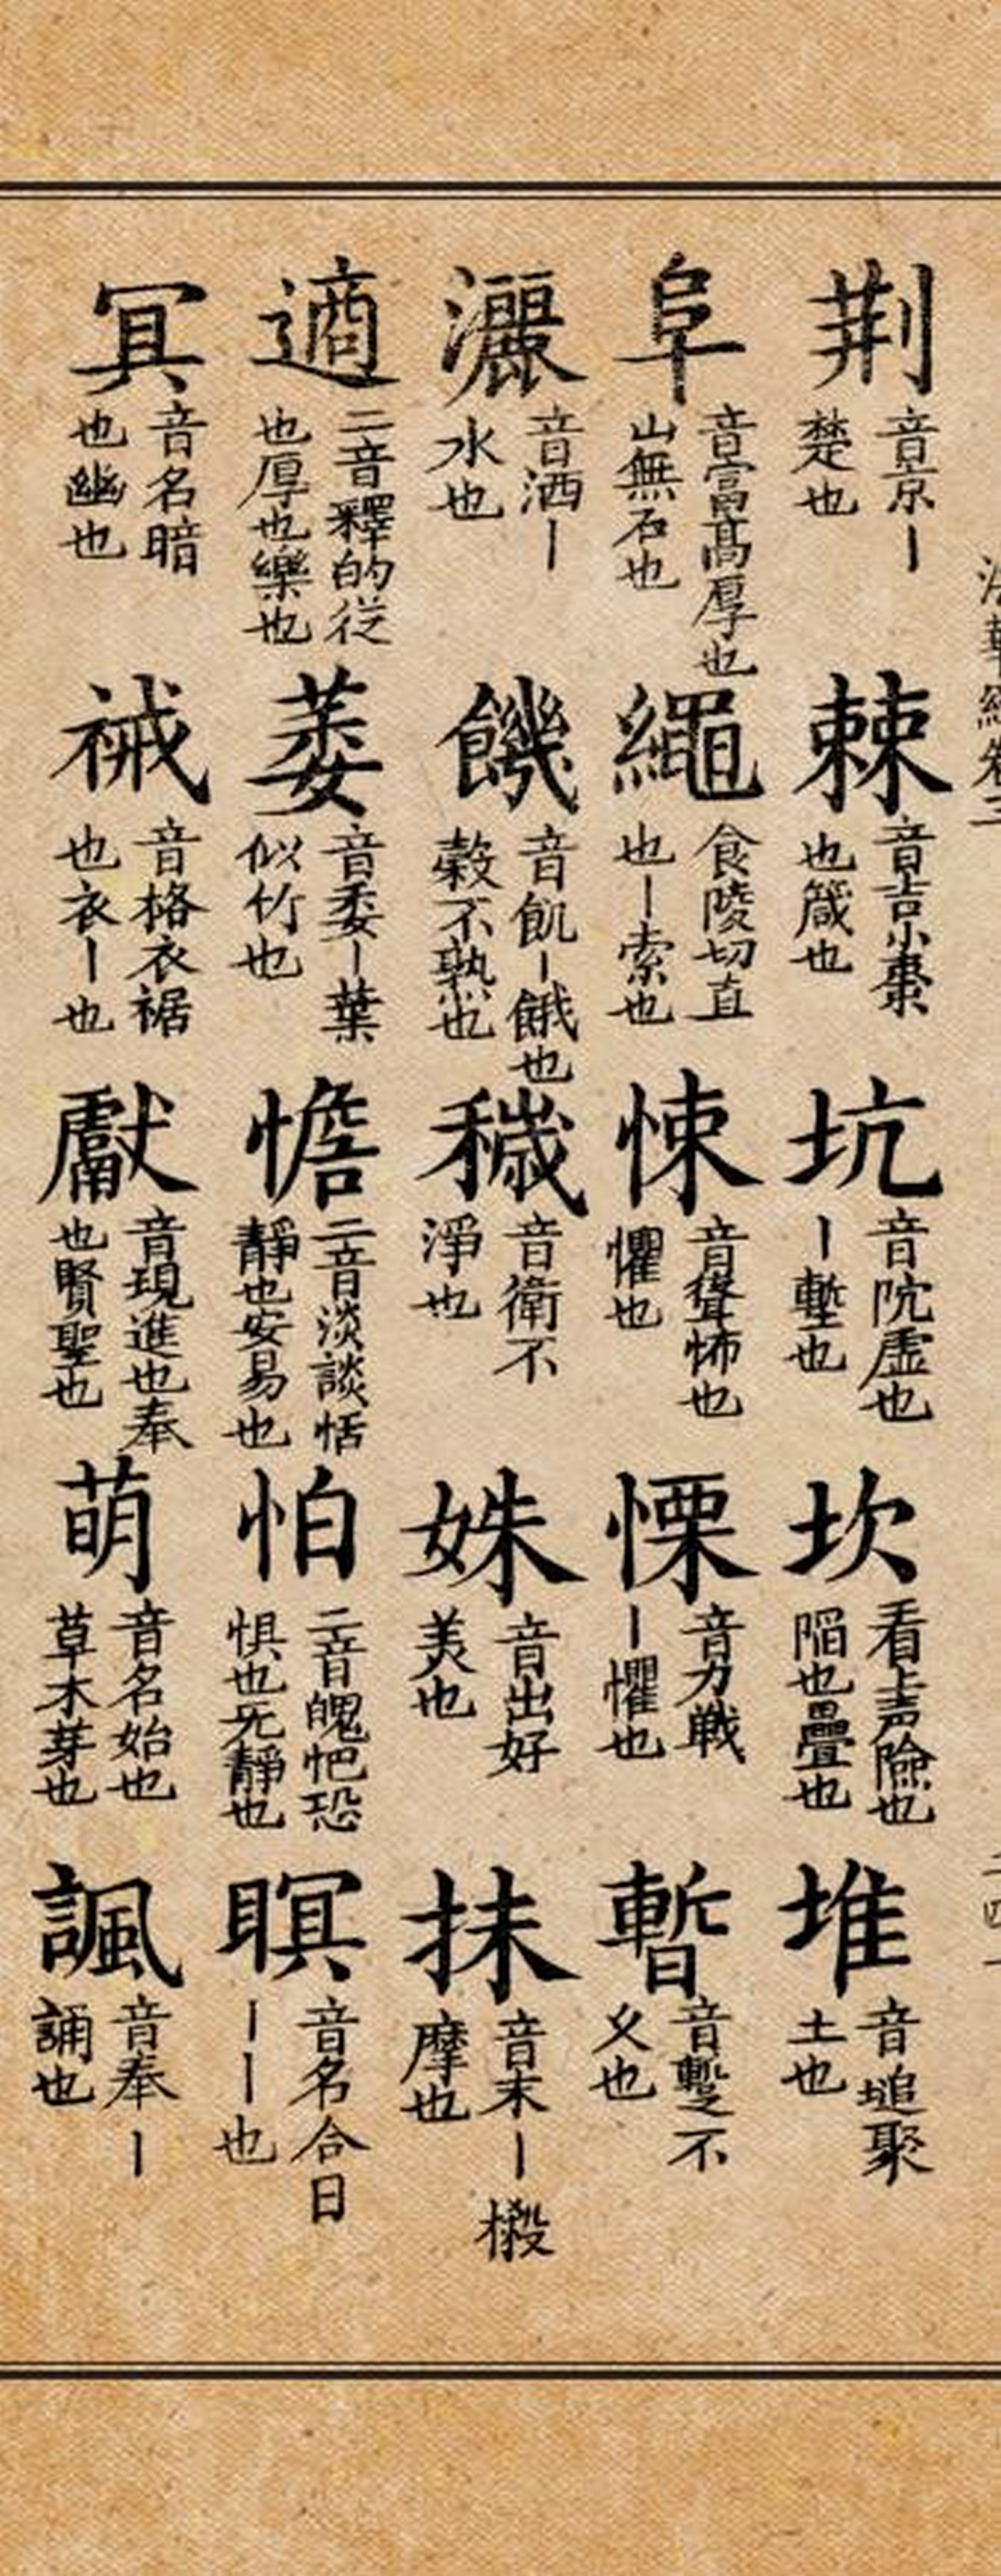 荆 音京丨楚也
棘 音吉小棗也箴也
坑 音院虚也丨塹也
坎 看上声險也陷也壘也
堆 音塠聚土也
阜 音富高厚也山無石也
繩 食陵切直也丨索也
悚 音聳怖也懼也
慄 音力戰丨懼也
暫 音蹔不久也
灑 音洒丨水也
饑 音飢丨餓也穀不熟也
穢 音衛不淨也
姝 音出好美也
抹 音末丨摋摩也
適 二音釋的從也厚也樂也
萎 音委丨葉似竹也
憺 二音淡談恬靜也安易也
怕 二音魄怕恐惧也无靜也
瞑 音名合日丨丨也
冥 音名暗也幽也
裓 音格衣裾也衣丨也
獻 音現進也奉也賢聖也
萌 音名始也草木芽也
諷 音奉丨誦也